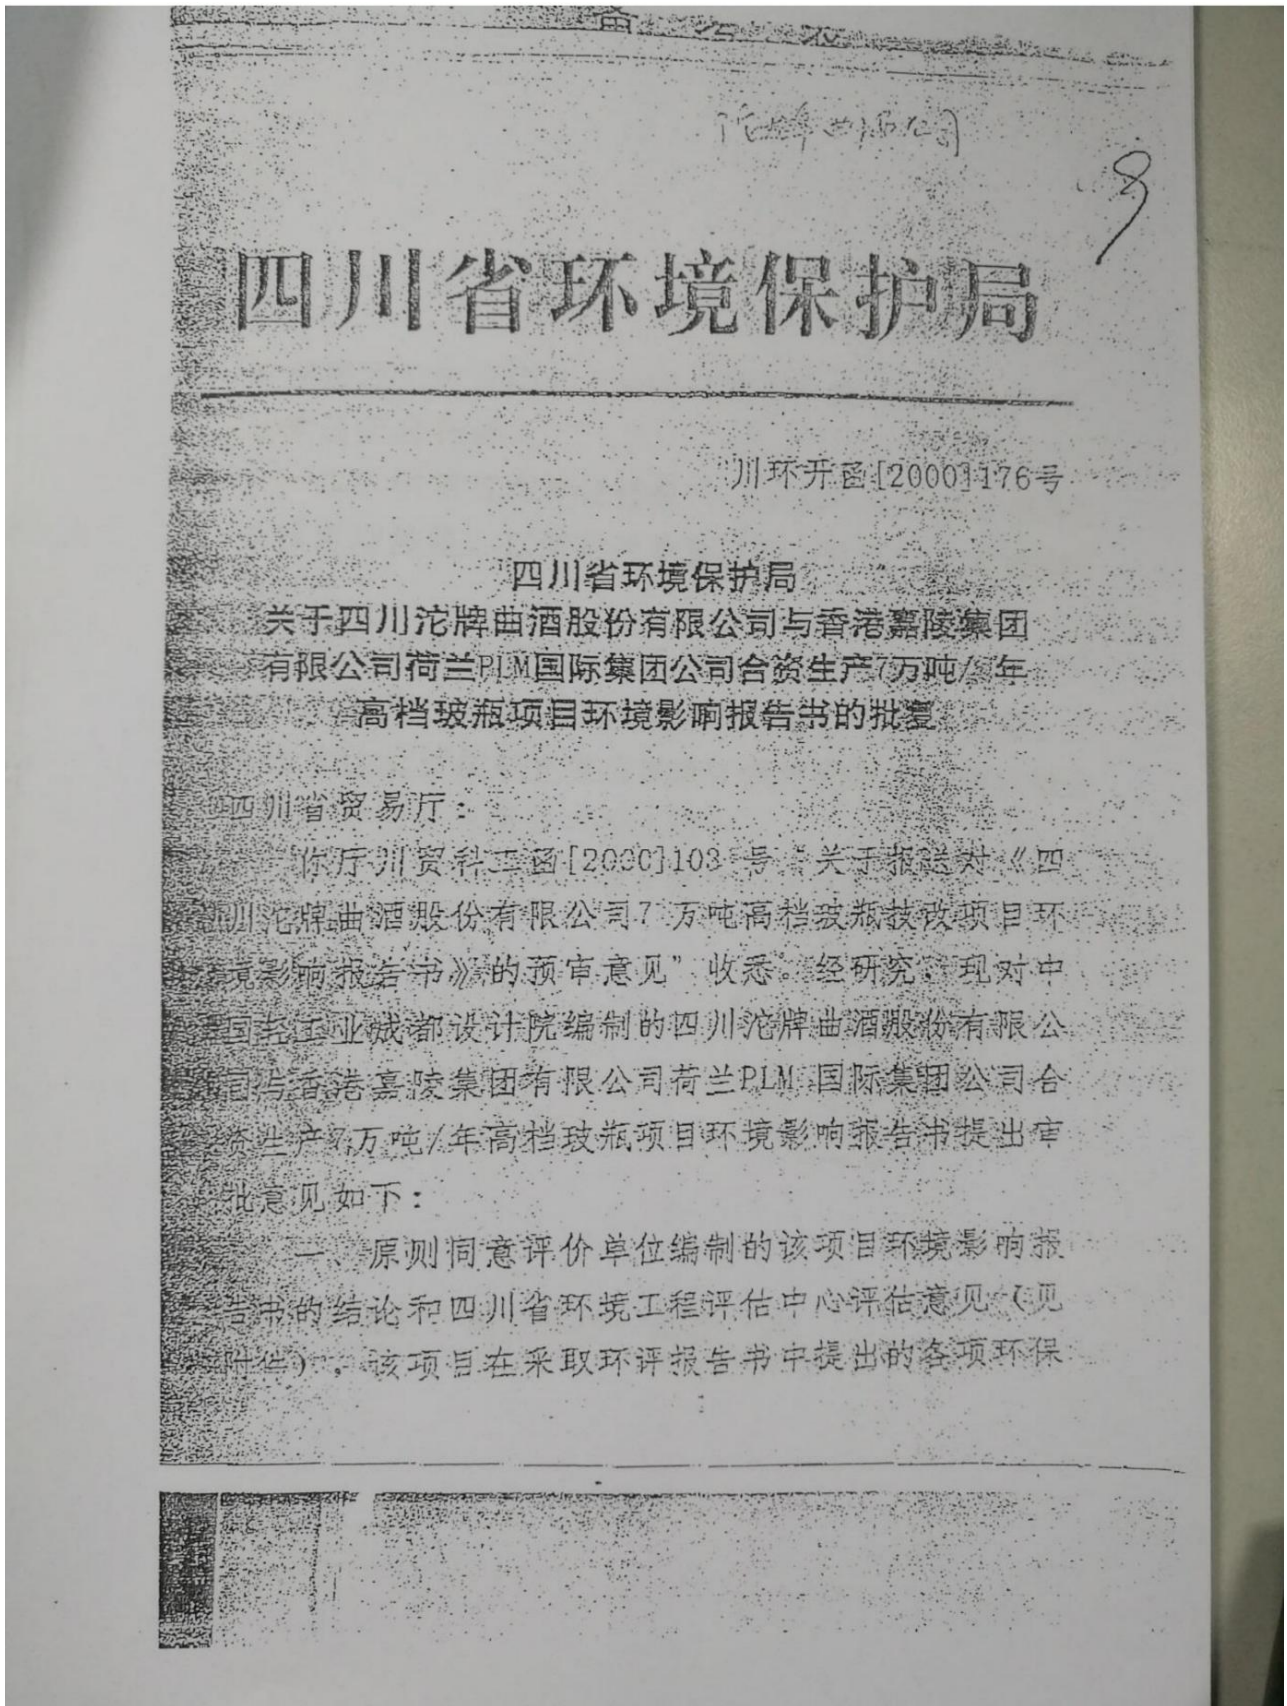 沱牌曲酒公司
四川省环境保护局
川环开函[2000]176号
四川省环境保护局
关于四川沱牌曲酒股份有限公司与香港嘉陵集团
有限公司荷兰PLM国际集团公司合资生产7万吨/年
高档玻瓶项目环境影响报告书的批复
四川省贸易厅：
你厅川贸科工函[2000]103号“关于报送对《四
川沱牌曲酒股份有限公司7万吨高档玻瓶技改项目环
境影响报告书》的预审意见”收悉。经研究，现对中
国轻工业成都设计院编制的四川沱牌曲酒股份有限公
司与香港嘉陵集团有限公司荷兰PLM国际集团公司合
资生产7万吨/年高档玻瓶项目环境影响报告书提出审
批意见如下：
一、原则同意评价单位编制的该项目环境影响报
告书的结论和四川省环境工程评估中心评估意见（见
附件），该项目在采取环评报告书中提出的各项环保